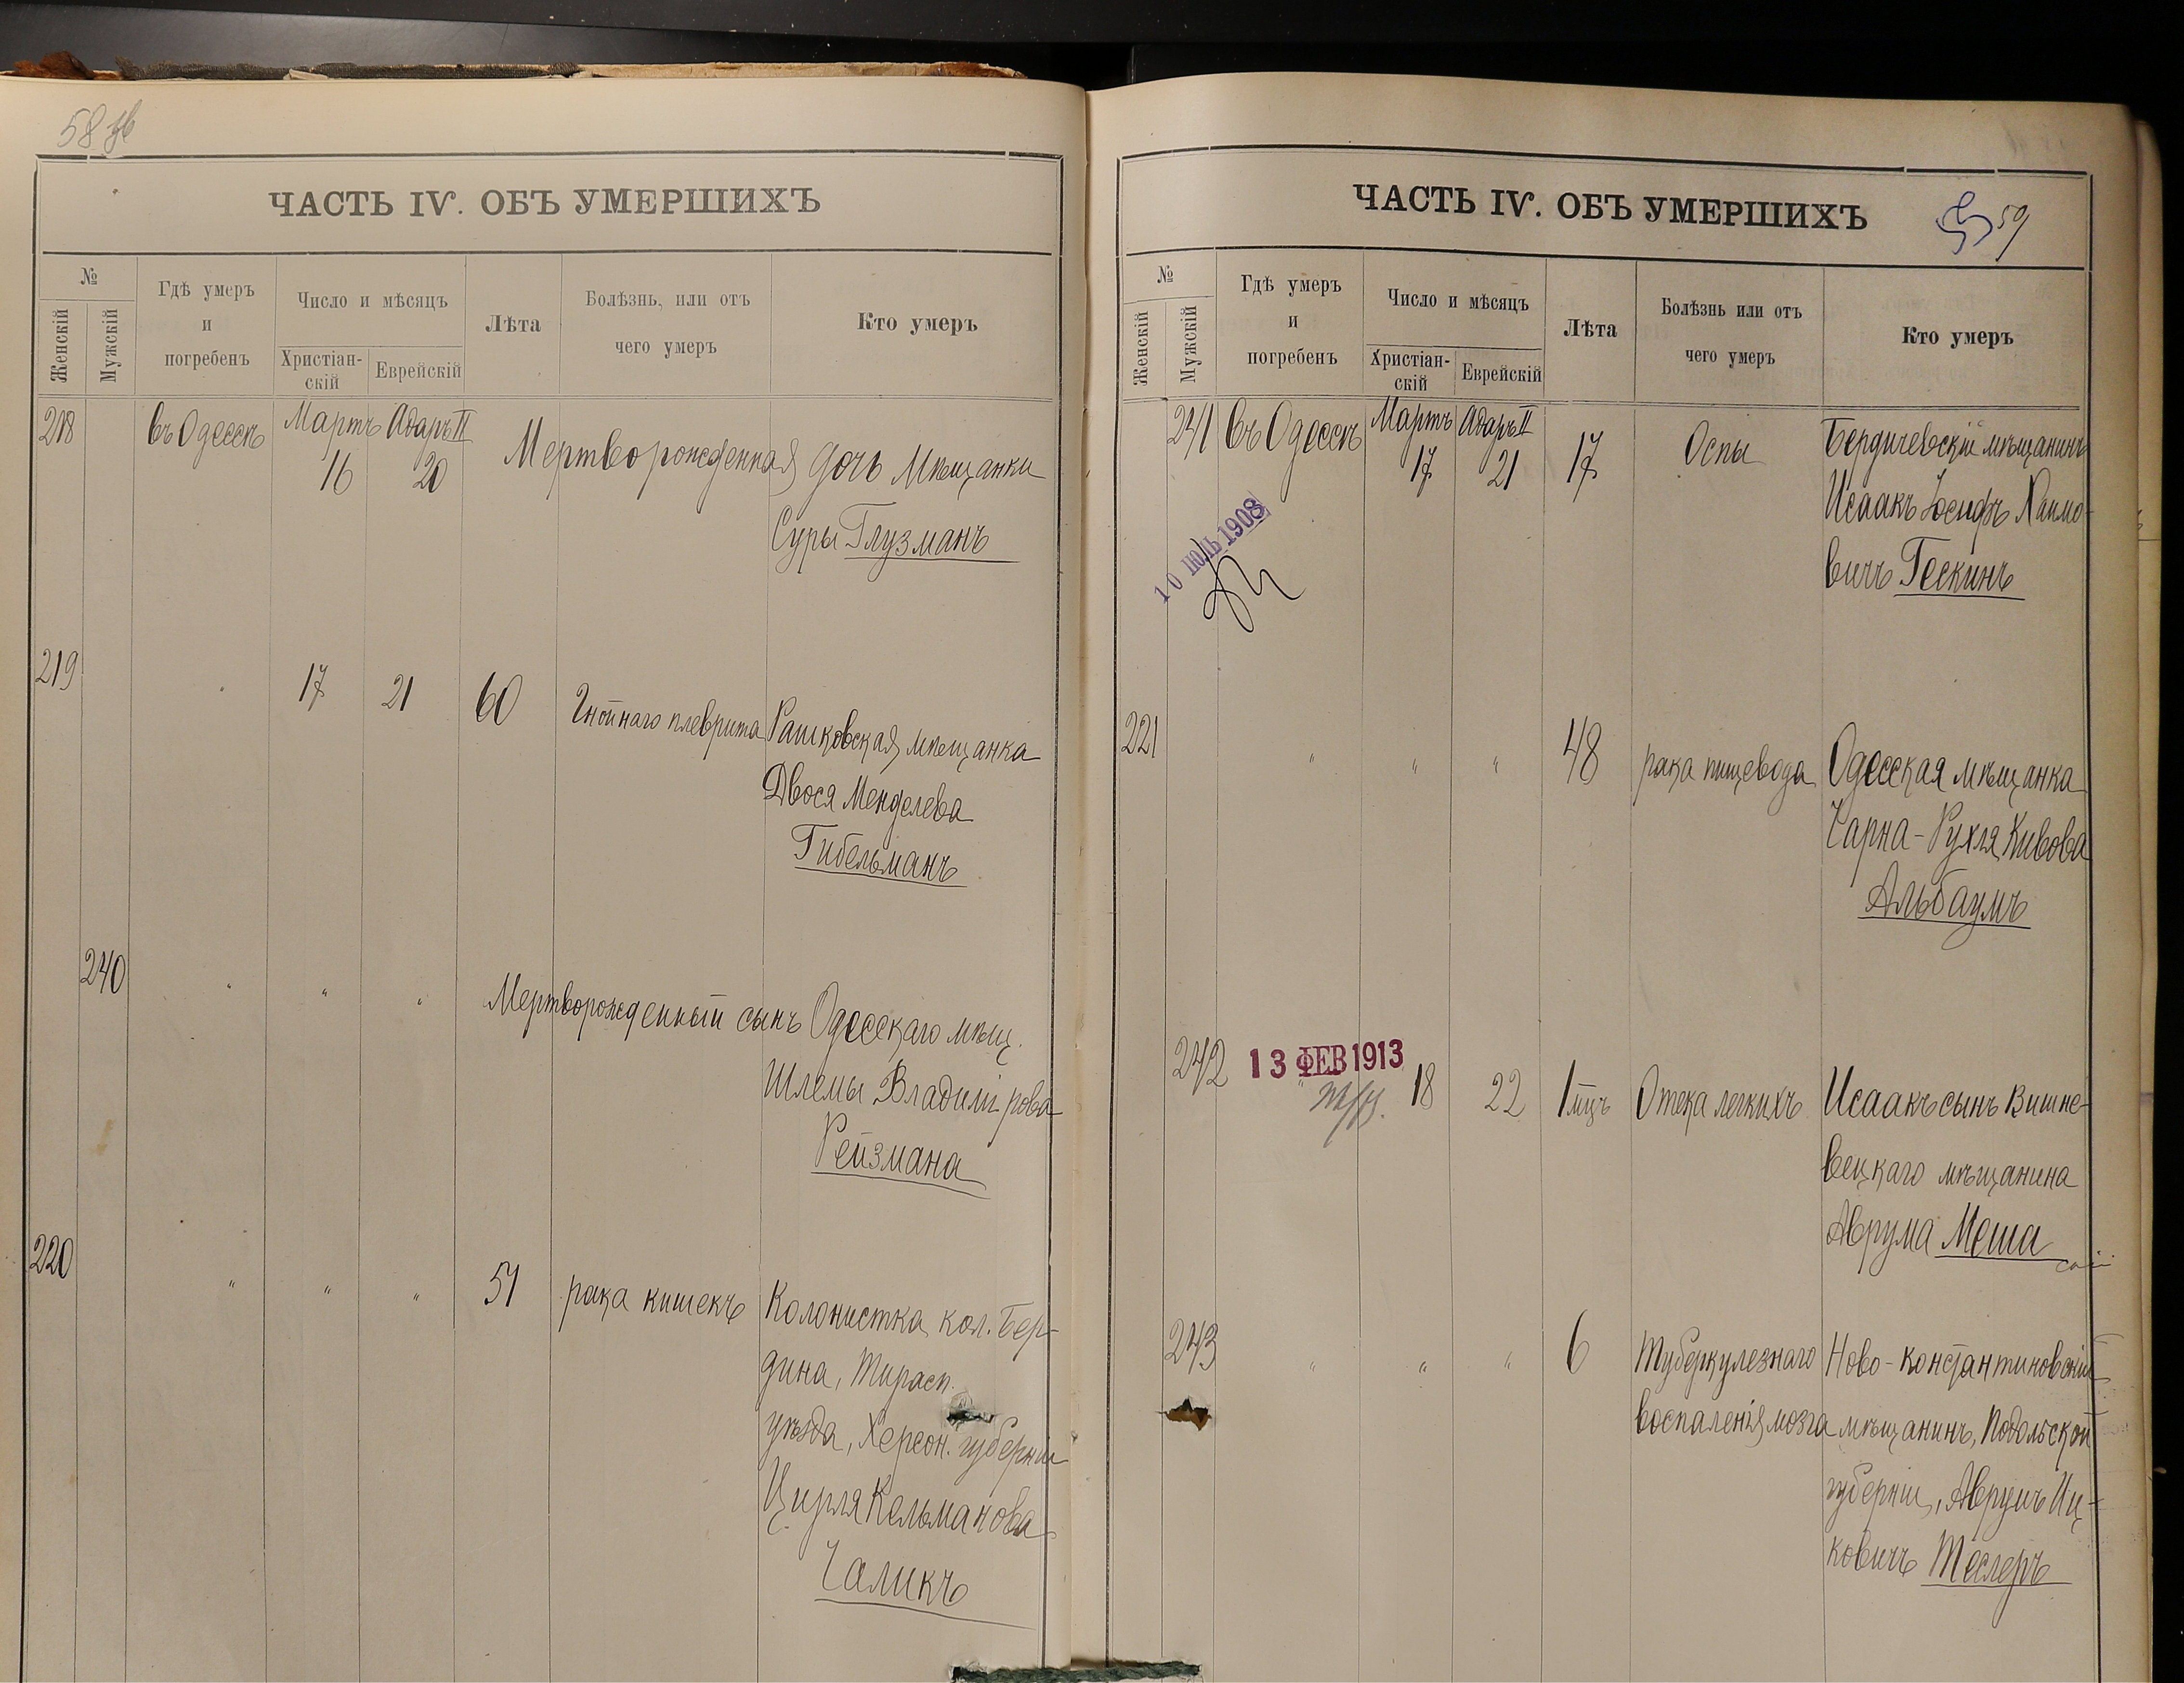 58 зв
ЧАСТЬ IV. ОБЪ УМЕРШИХЪ
№
Женскій
Мужскій
Гдѣ умеръ
и
погребенъ
Число и мѣсяцъ
Христіан-
скій
Еврейскій
Лѣта
Болѣзнь, или отъ
чего умеръ
Кто умеръ
218 въ Одессѣ Мартъ Адаръ II
16 20 Мертворожденная дочь мѣщанки
Суры Глузманъ
219 " 17 21 60 Гнойнаго плеврита Рашковская мѣщанка
Двося Менделева
Гибельманъ
240 " " " Мертворожденный сынъ Одесскаго мѣщ.
Шлемы Владимірова
Рейзмана
220 " " " 51 рака кишекъ Колонистка кол. Бер-
дина, Тирасп.
уѣзда, Херсон. губерніи
Цирля Кельманова
Чаликъ
ЧАСТЬ IV. ОБЪ УМЕРШИХЪ
59
№
Женскій
Мужскій
Гдѣ умеръ
и
погребенъ
Число и мѣсяцъ
Христіан-
скій
Еврейскій
Лѣта
Болѣзнь или отъ
чего умеръ
Кто умеръ
241 въ Одессѣ Мартъ Адаръ II
17 21 17 Оспы Бердичевскій мѣщанинъ
Исаакъ Іосифъ Хаимо-
вичъ Гескинъ
10 ІЮЛЬ 1908
221 " " " 48 рака пищевода Одесская мѣщанка
Чарна-Рухля Кивова
Альбаумъ
13 ФЕВ 1913
242 " 18 22 1 мцъ Отека легкихъ Исаакъ сынъ Вишне-
вецкаго мѣщанина
Аврума Меша
243 " " " 6 Туберкулезнаго Ново-константиновскій
воспаленія мозга мѣщанинъ, Подольской
губерніи, Аврумъ Иц-
ковичъ Теслеръ